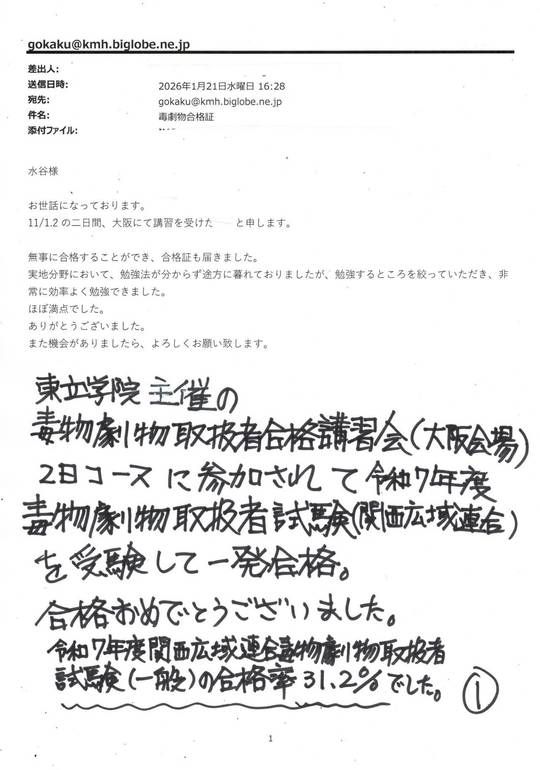 gokaku@kmh.biglobe.ne.jp
差出人:
送信日時: 2026年1月21日水曜日 16:28
宛先: gokaku@kmh.biglobe.ne.jp
件名: 毒劇物合格証
添付ファイル:
水谷様
お世話になっております。
11/1.2 の二日間、大阪にて講習を受けた と申します。
無事に合格することができ、合格証も届きました。
実地分野において、勉強法が分からず途方に暮れておりましたが、勉強するところを絞っていただき、非
常に効率よく勉強できました。
ほぼ満点でした。
ありがとうございました。
また機会がありましたら、よろしくお願い致します。
東立学院 主催の
毒物劇物取扱者合格講習会(大阪会場)
2日コースに参加されて令和7年度
毒物劇物取扱者試験(関西広域連合)
を受験して一発合格。
合格おめでとうございました。
令和7年度関西広域連合毒物劇物取扱者
試験(一般)の合格率31.2%でした。 ①
1